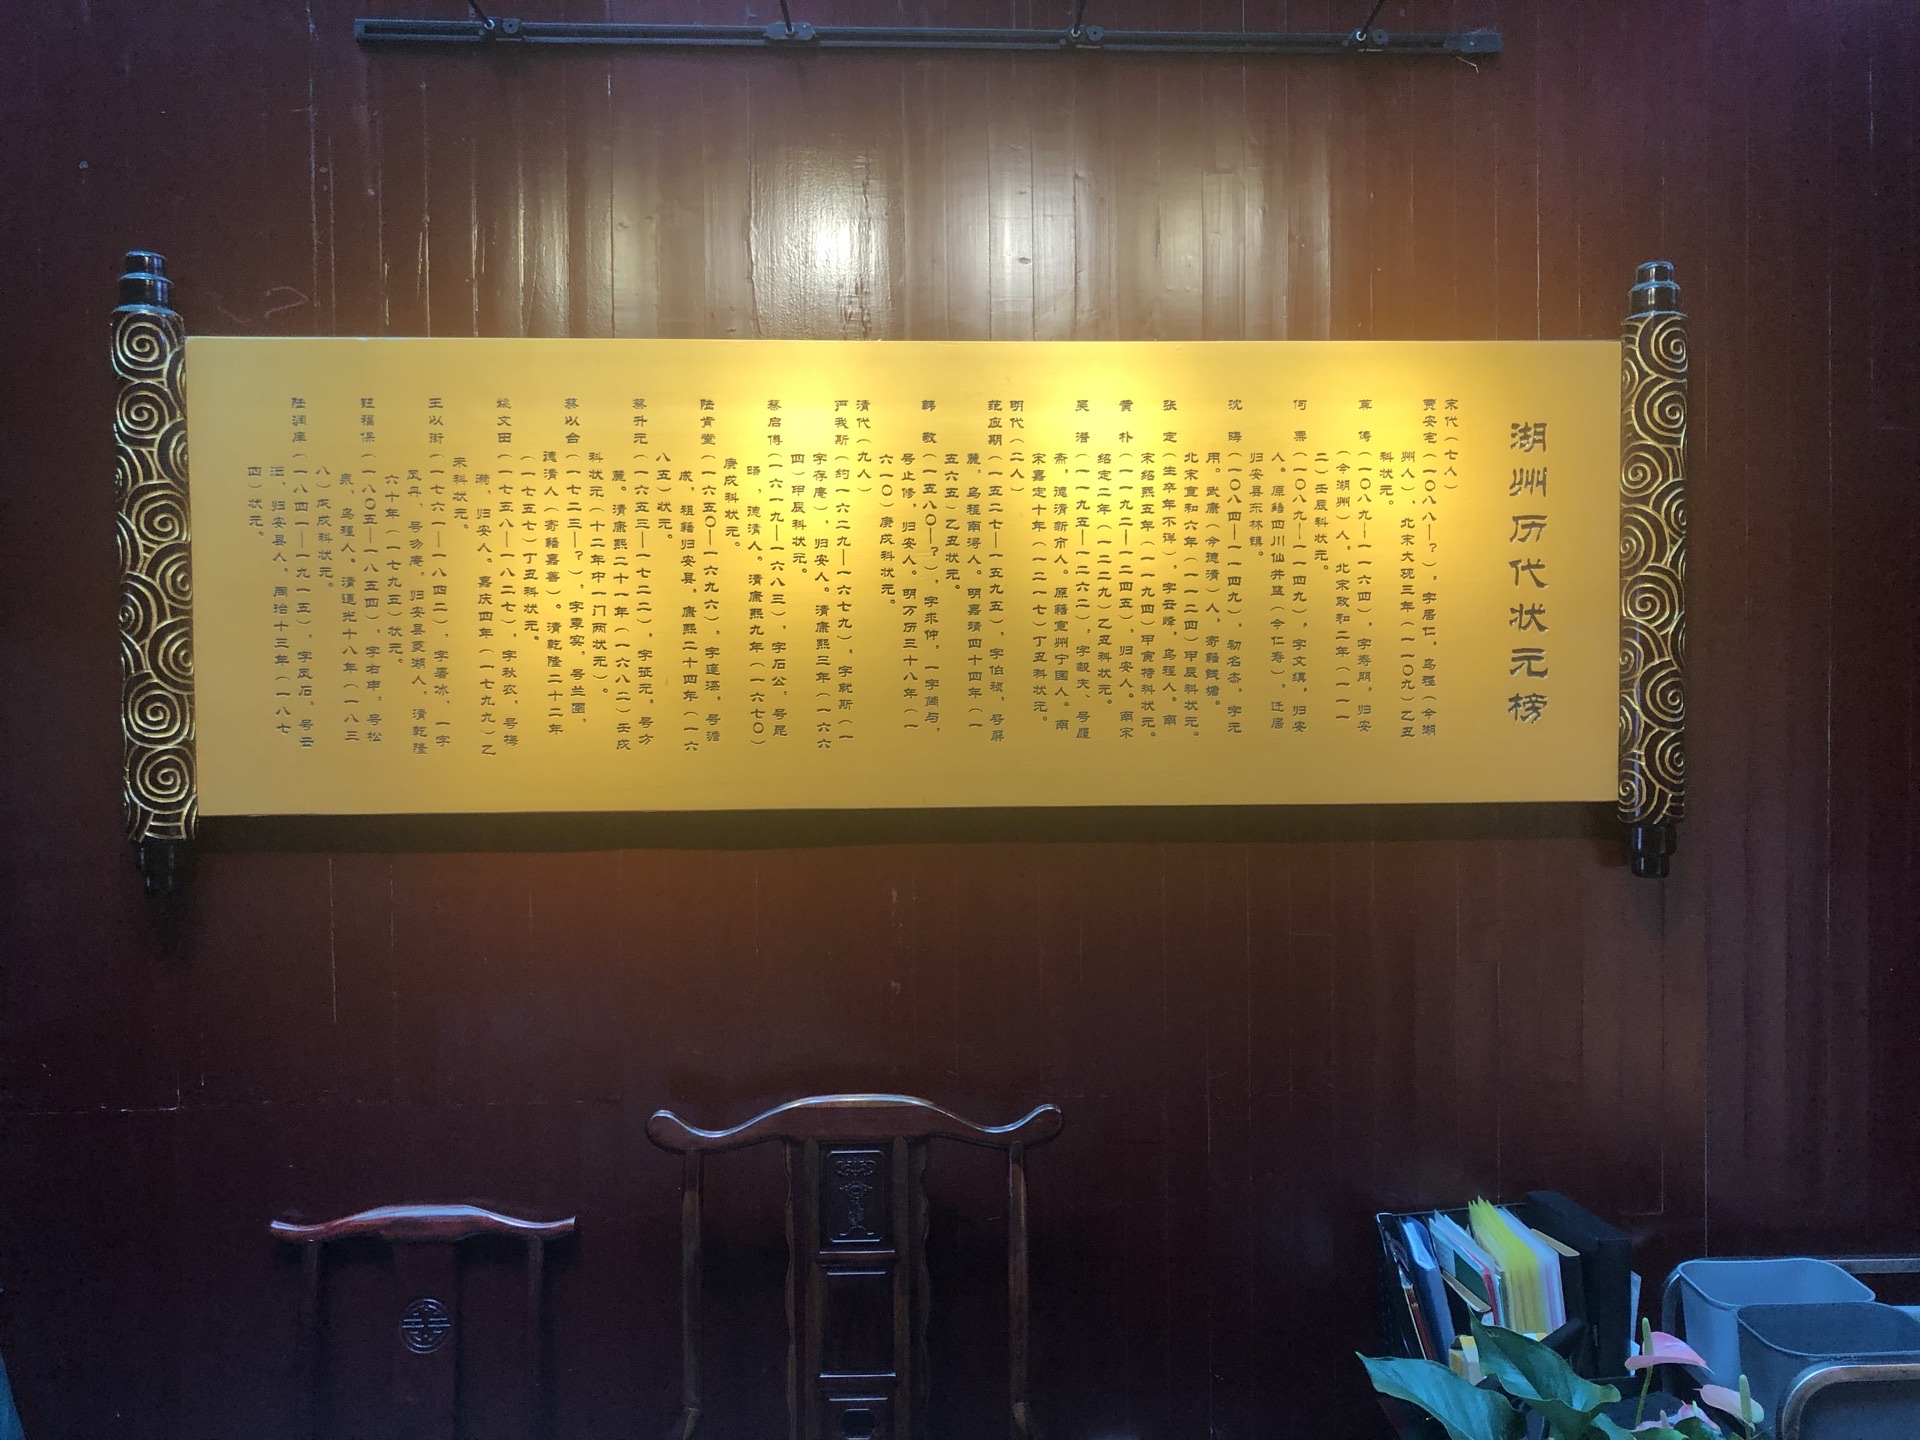 湖州历代状元榜
宋代（七人）
贾安宅（一〇八八—？），字居仁，乌程（今湖
州人），北宋大观三年（一一〇九）乙五
科状元。
莫　俦（一〇八九—一一六四），字寿朋，归安
（今湖州）人，北宋政和二年（一一一
二）壬辰科状元。
何　㮚（一〇八九—一一四九），字文缜，归安
人。原籍四川仙井监（今仁寿），迁居
归安县东林镇。
沈　晦（一〇八四—一一四九），初名杰，字元
用。武康（今德清）人，寄籍钱塘。
北宋宣和六年（一一二四）甲辰科状元。
张　定（生卒年不详），字云峰，乌程人。南
宋绍熙五年（一一九四）甲寅特科状元。
黄　朴（一一九二—一二四五），归安人。南宋
绍定二年（一二二九）乙丑科状元。
吴　潜（一一九五—一二六二），字毅夫、号履
斋，德清新市人。原籍宣州宁国人。南
宋嘉定十年（一二一七）丁丑科状元。
明代（二人）
范应期（一五二七—一五九五），字伯祯，号屏
麓，乌程南浔人。明嘉清四十四年（一
五六五）乙丑状元。
韩　敬（一五八〇—？），字求仲，一字简与，
号止修，归安人。明万历三十八年（一
六一〇）庚戌科状元。
清代（九人）
严我斯（约一六二九—一六七九），字就斯（一
字存庵），归安人。清康熙三年（一六六
四）甲辰科状元。
蔡启僔（一六一九—一六八三），字石公，号昆
旸，德清人。清康熙九年（一六七〇）
庚戌科状元。
陆肯堂（一六五〇—一六九六），字邃深，号澹
成，祖籍归安县，康熙二十四年（一六
八五）状元。
蔡升元（一六五三—一七二二），字征元，号方
麓。清康熙二十一年（一六八二）壬戌
科状元（十二年中一门两状元）。
蔡以台（一七二三—？），字季实，号兰圃，
德清人（寄籍嘉善）。清乾隆二十二年
（一七五七）丁丑科状元。
姚文田（一七五八—一八二七），字秋农，号梅
漪，归安人。嘉庆四年（一七九九）乙
未科状元。
王以衔（一七六一—一八四二），字署冰，一字
凤丹，号勿庵，归安县菱湖人，清乾隆
六十年（一七九五）状元。
钮福保（一八〇五—一八五四），字右申，号松
泉，乌程人。清道光十八年（一八三
八）戊戌科状元。
陆润庠（一八四一—一九一五），字凤石，号云
洒，归安县人。同治十三年（一八七
四）状元。